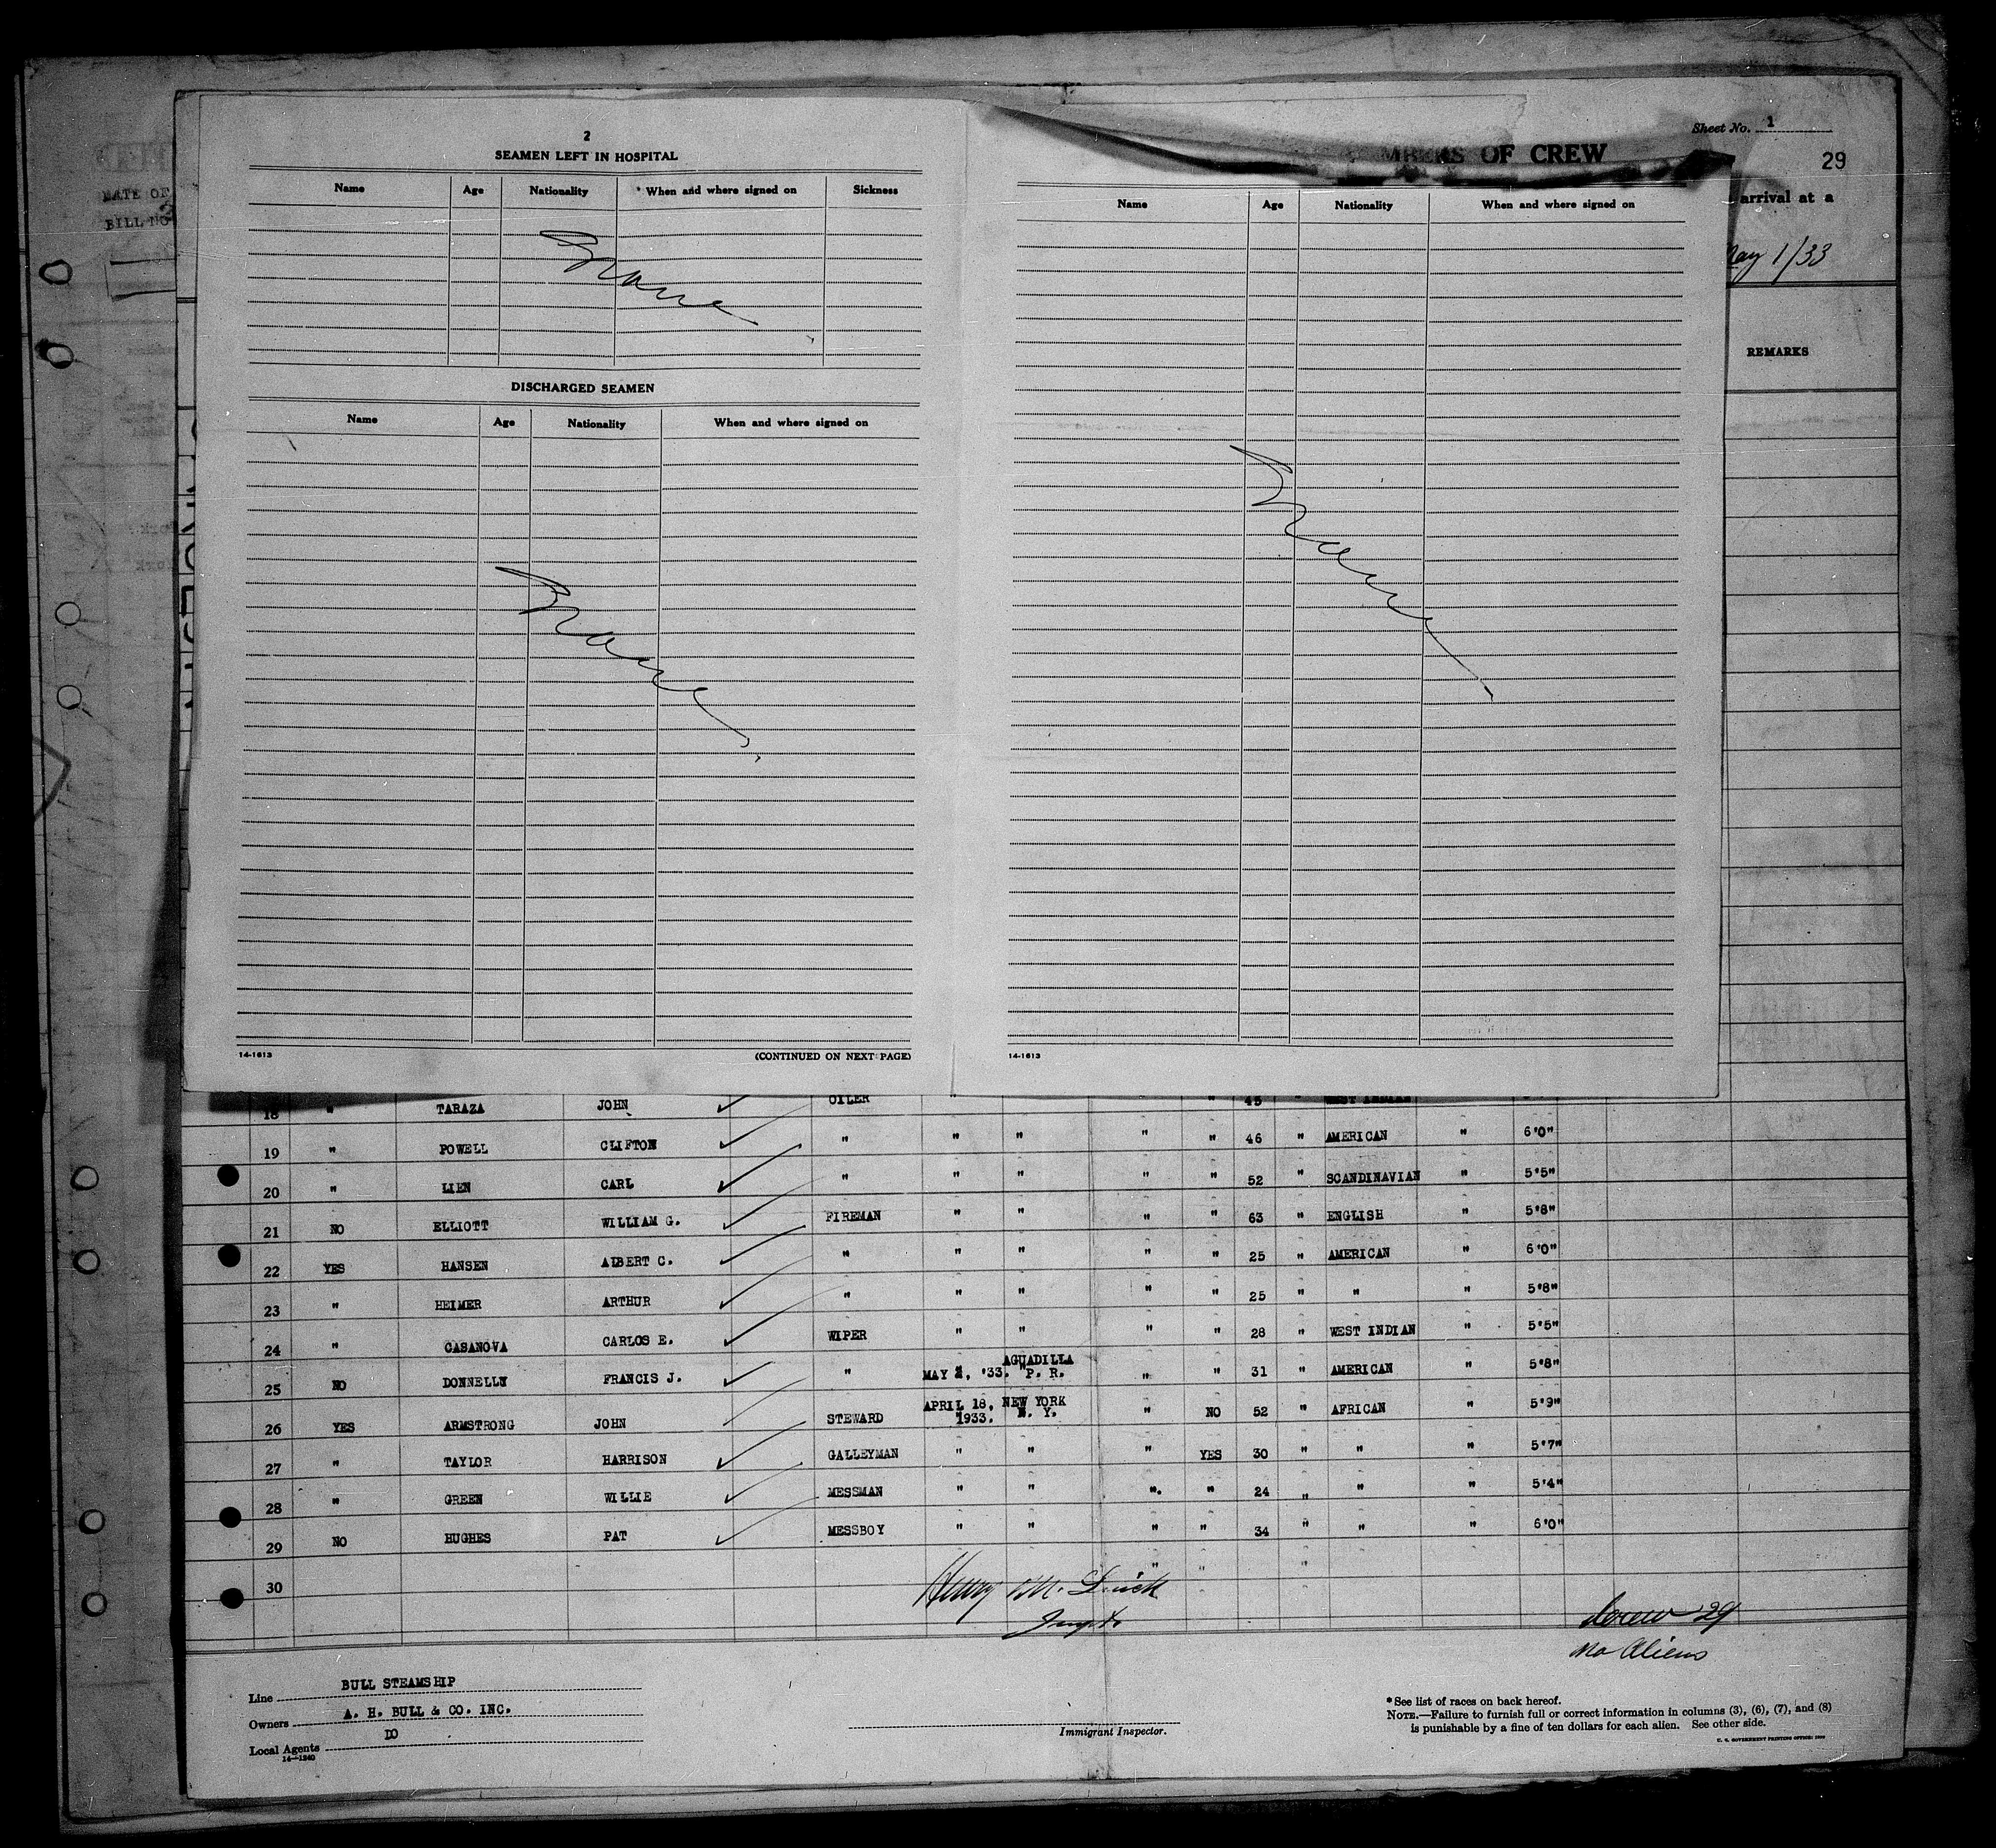 2
SEAMEN LEFT IN HOSPITAL
Name Age Nationality When and where signed on Sickness
None
DISCHARGED SEAMEN
Name Age Nationality When and where signed on
None
14-1613 (CONTINUED ON NEXT PAGE)
Sheet No. 1
OF CREW
29
Name Age Nationality When and where signed on
arrival at a
May 1/33
REMARKS
None
14-1613
DATE OF
BILL NO
18 " TARAZA JOHN OILER " " 45 " WEST INDIAN
19 " POWELL CLIFTON " " " " " 46 " AMERICAN " 6'0"
20 " LIEN CARL " " " " " 52 " SCANDINAVIAN " 5'5"
21 NO ELLIOTT WILLIAM G. FIREMAN " " " " 63 " ENGLISH " 5'8"
22 YES HANSEN ALBERT C. " " " " " 25 " AMERICAN " 6'0"
23 " HEIMER ARTHUR " " " " " 25 " " " 5'8"
24 " CASANOVA CARLOS E. WIPER " " " " 28 " WEST INDIAN " 5'5"
AGUADILLA
25 NO DONNELLY FRANCIS J. " MAY , '33. P. R. " " 31 " AMERICAN " 5'8"
APRIL 18, NEW YORK
26 YES ARMSTRONG JOHN STEWARD 1933. N. Y. " NO 52 " AFRICAN " 5'9"
27 " TAYLOR HARRISON GALLEYMAN " " " YES 30 " " " 5'7"
28 " GREEN WILLIE MESSMAN " " " " 24 " " " 5'4"
29 NO HUGHES PAT MESSBOY " " " " 34 " " " 6'0"
30 " " "
Henry M.
Crew 29
No Aliens
Line BULL STEAMSHIP
Owners A. H. BULL & CO. INC.
Local Agents DO
14-1240
Immigrant Inspector.
*See list of races on back hereof.
NOTE.—Failure to furnish full or correct information in columns (3), (6), (7), and (8)
is punishable by a fine of ten dollars for each alien. See other side.
U. S. GOVERNMENT PRINTING OFFICE: